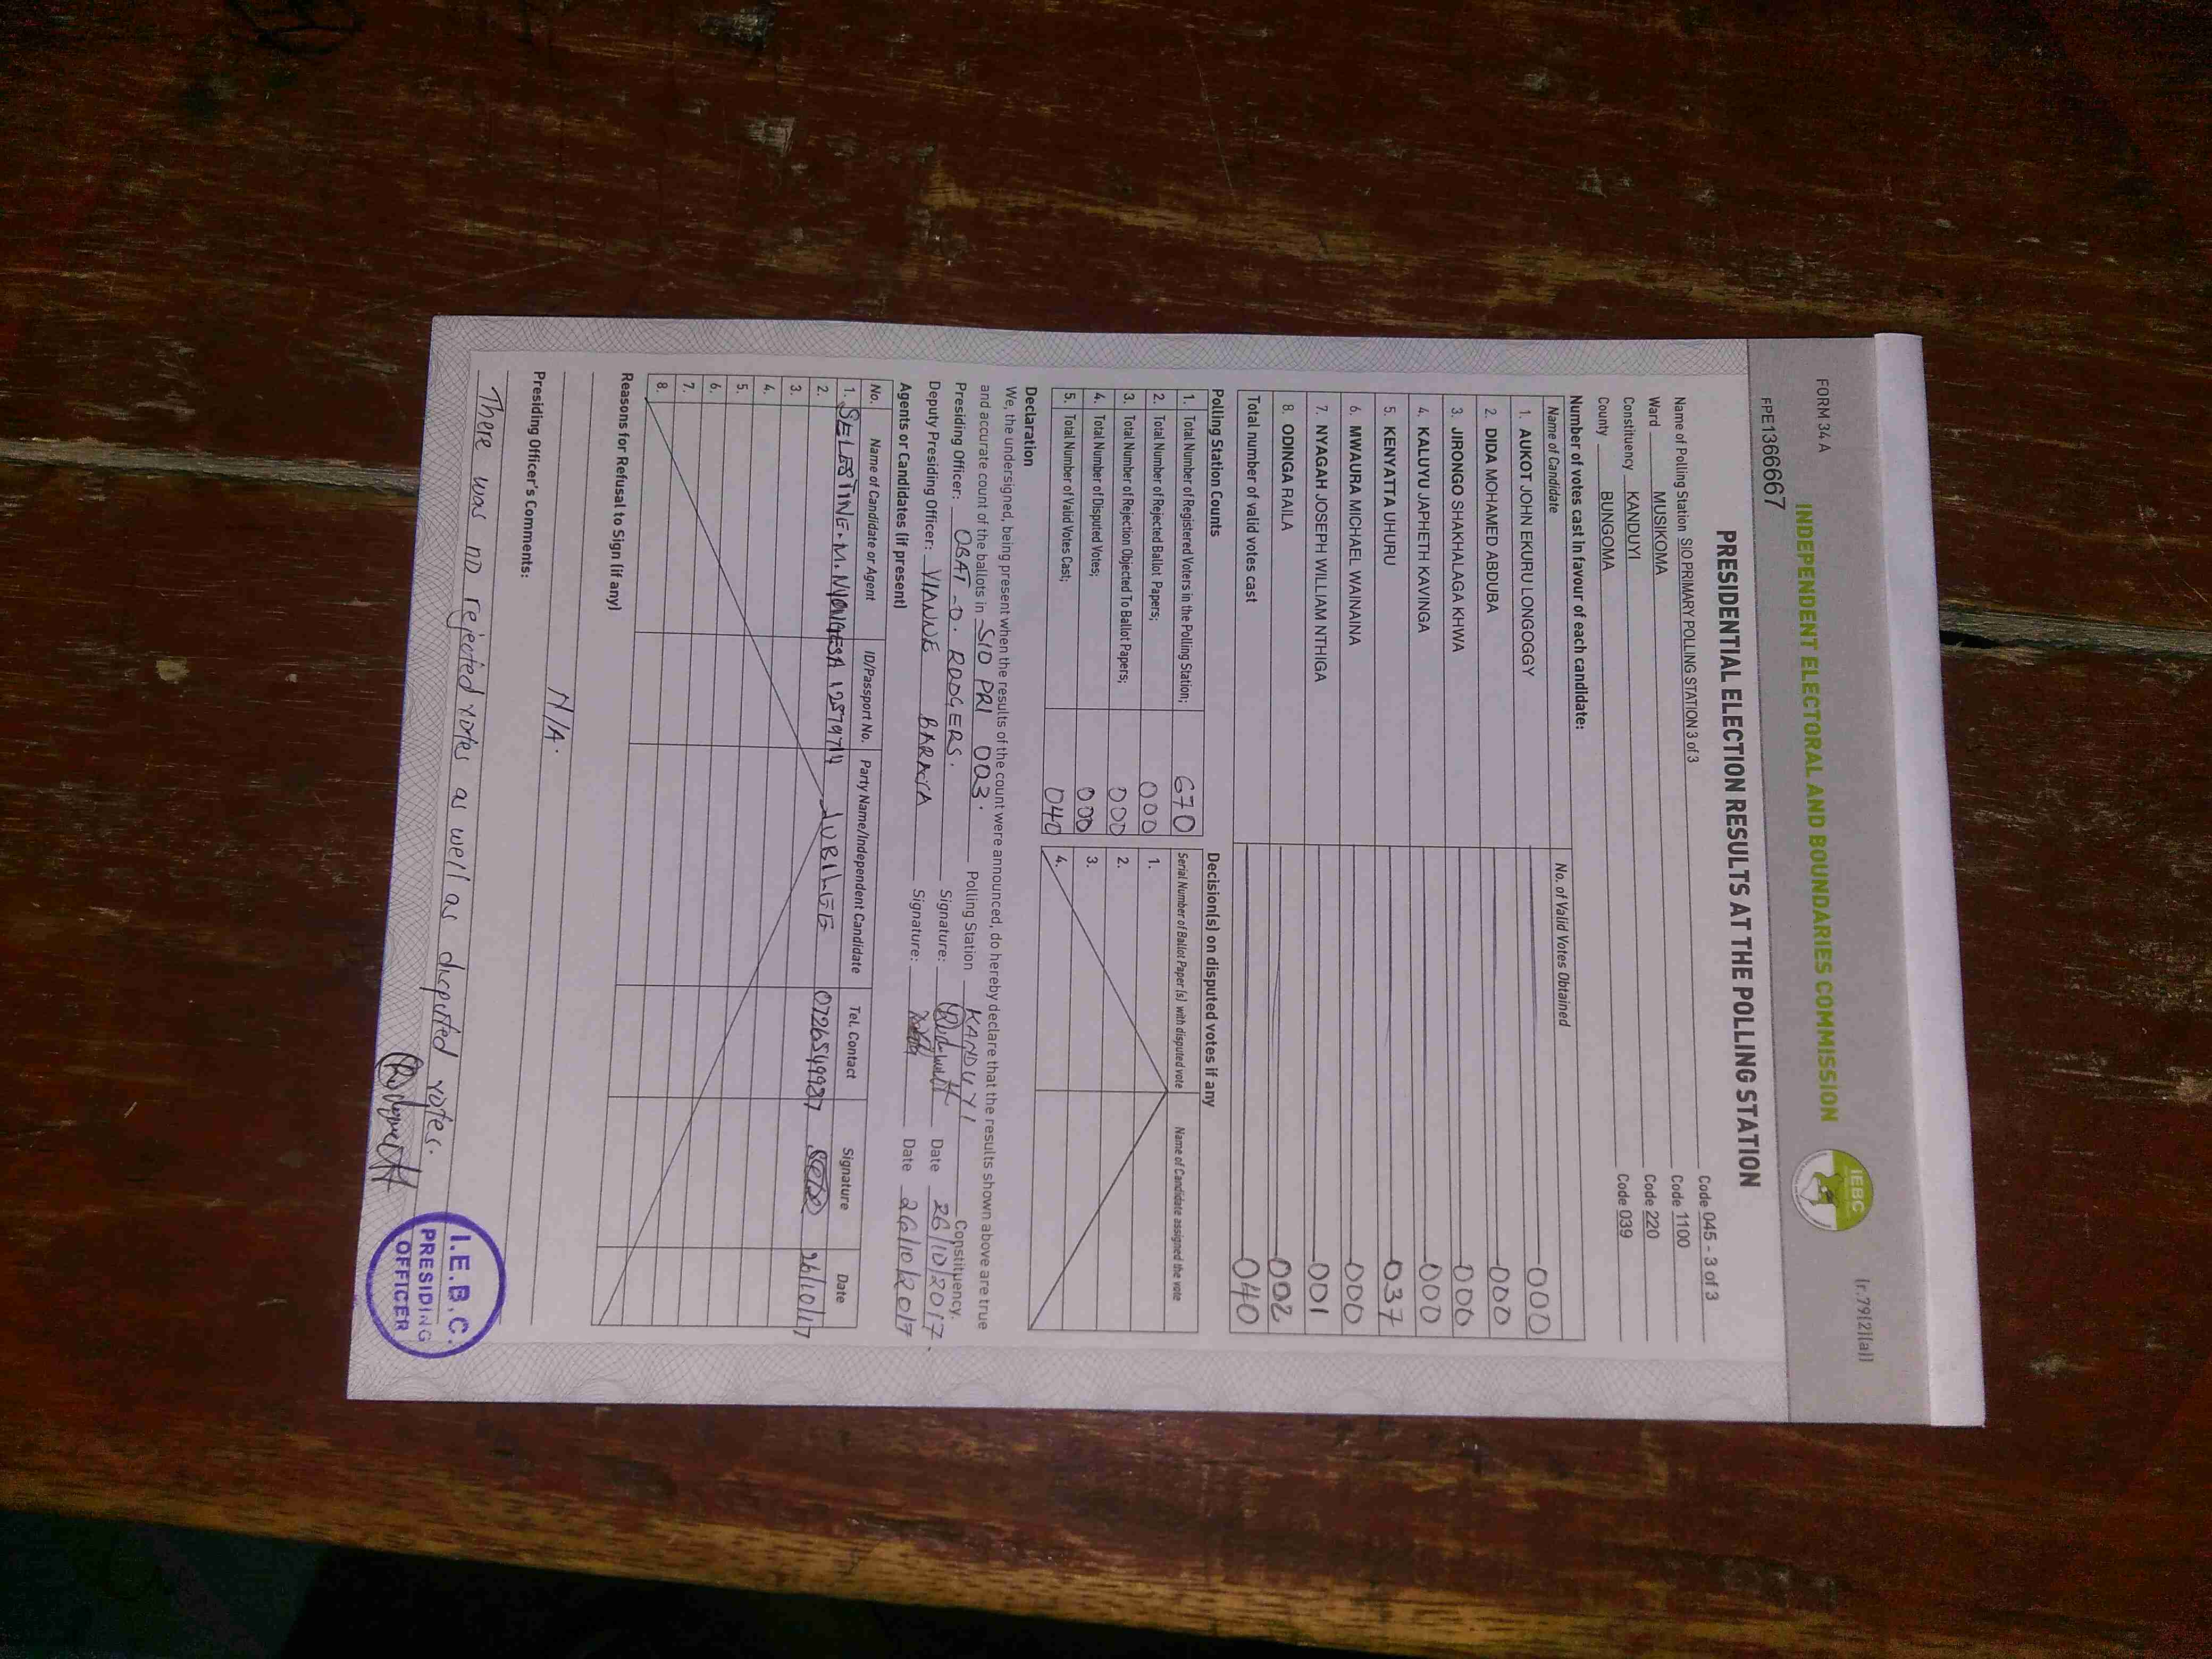 FORM 34 A
(r.79(2)(a))
INDEPENDENT ELECTORAL AND BOUNDARIES COMMISSION
IEBC
FPE1366667
PRESIDENTIAL ELECTION RESULTS AT THE POLLING STATION
Name of Polling Station SIO PRIMARY POLLING STATION 3 of 3 Code 045 - 3 of 3
Ward MUSIKOMA Code 1100
Constituency KANDUYI Code 220
County BUNGOMA Code 039
Number of votes cast in favour of each candidate:
Name of Candidate No. of Valid Votes Obtained
1. AUKOT JOHN EKURU LONGOGGY 000
2. DIDA MOHAMED ABDUBA 000
3. JIRONGO SHAKHALAGA KHWA 000
4. KALUYU JAPHETH KAVINGA 000
5. KENYATTA UHURU 037
6. MWAURA MICHAEL WAINAINA 000
7. NYAGAH JOSEPH WILLIAM NTHIGA 001
8. ODINGA RAILA 002
Total number of valid votes cast 040
Polling Station Counts
1. Total Number of Registered Voters in the Polling Station; 670
2. Total Number of Rejected Ballot Papers; 000
3. Total Number of Rejection Objected To Ballot Papers; 000
4. Total Number of Disputed Votes; 000
5. Total Number of Valid Votes Cast; 040
Decision(s) on disputed votes if any
Serial Number of Ballot Paper (s) with disputed vote Name of Candidate assigned the vote
1.
2.
3.
4.
Declaration
We, the undersigned, being present when the results of the count were announced, do hereby declare that the results shown above are true
and accurate count of the ballots in SIO PRI 003. Polling Station KANDUYI Constituency.
Presiding Officer: OBAT - O. ROOGERS. Signature: Date 26/10/2017
Deputy Presiding Officer: VIANNE BARASA Signature: Date 26/10/2017
Agents or Candidates (if present)
No. Name of Candidate or Agent ID/Passport No. Party Name/Independent Candidate Tel. Contact Signature Date
1. SELESTINE. M. NYONGESA 12579714 JUBILEE 0726549987 26/10/17
2.
3.
4.
5.
6.
7.
8.
Reasons for Refusal to Sign (if any)
N/A.
Presiding Officer's Comments:
There was no rejected votes as well as disputed votes.
I.E.B.C.
PRESIDING
OFFICER